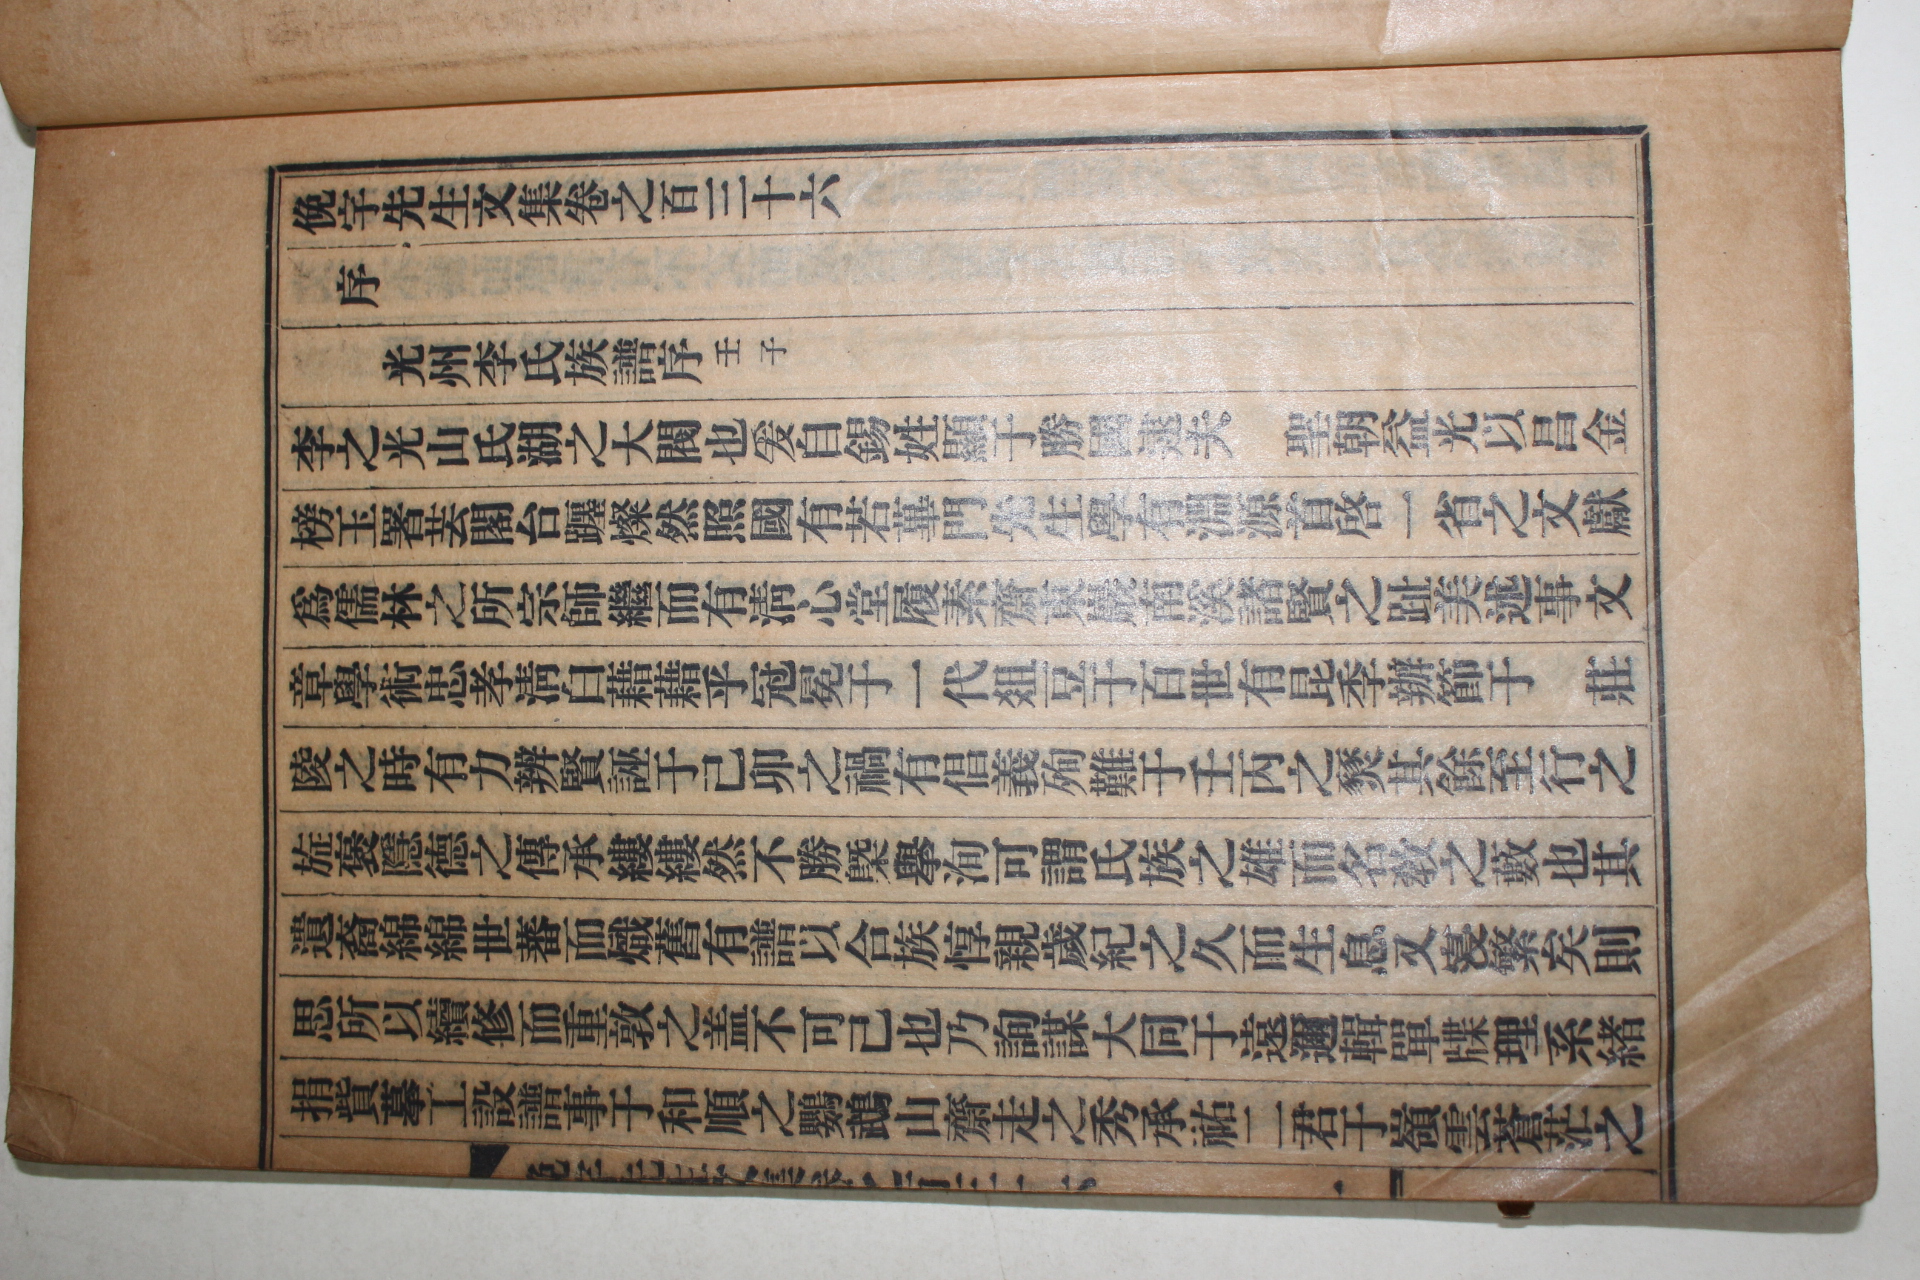 俛宇先生文集卷之百三十六
序
光州李氏族譜序 壬子
李之光山氏湖之大閥也爰自錫姓顯于勝國逮夫 聖朝益光以昌金
榜玉署芸閣台躔燦然照國有若蓽門先生學有淵源首啓一省之文獻
爲儒林之所宗師繼而有淸心堂履素齋東巖南溪諸賢之趾美述事文
章學術忠孝淸白藉藉乎冠冕于一代俎豆于百世有昆季辦節于 莊
陵之時有力辨賢誣于己卯之禍有倡義殉難于壬丙之燹其餘至行之
旌褒隱德之傳承縷縷然不勝槩擧洵可謂氏族之雄而名敎之藪也其
遺裔綿綿世蕃而熾舊有譜以合族惇親歲紀之久而生息又寖繁矣則
思所以續修而重敦之盖不可已也乃詢謀大同于遠邇輯單牒理系緖
捐貲募工設譜事于和順之鸚鵡山齋走之秀承祐二君于嶺雲蒼茫之